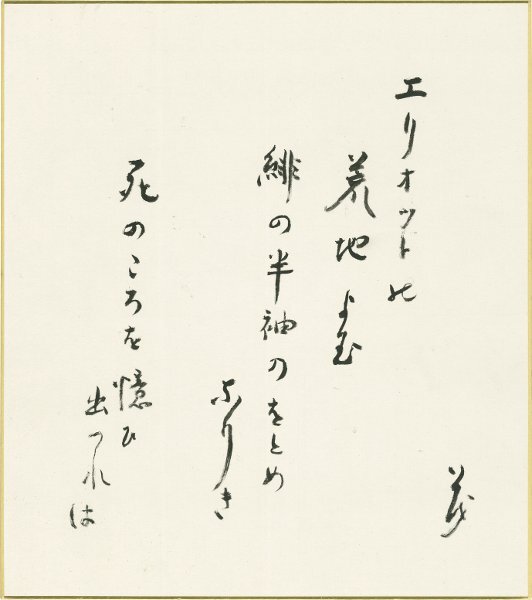 茂
エリオットの
荒地よむ
緋の半袖のをとめ
なりき
死のころを憶ひ
出つれは